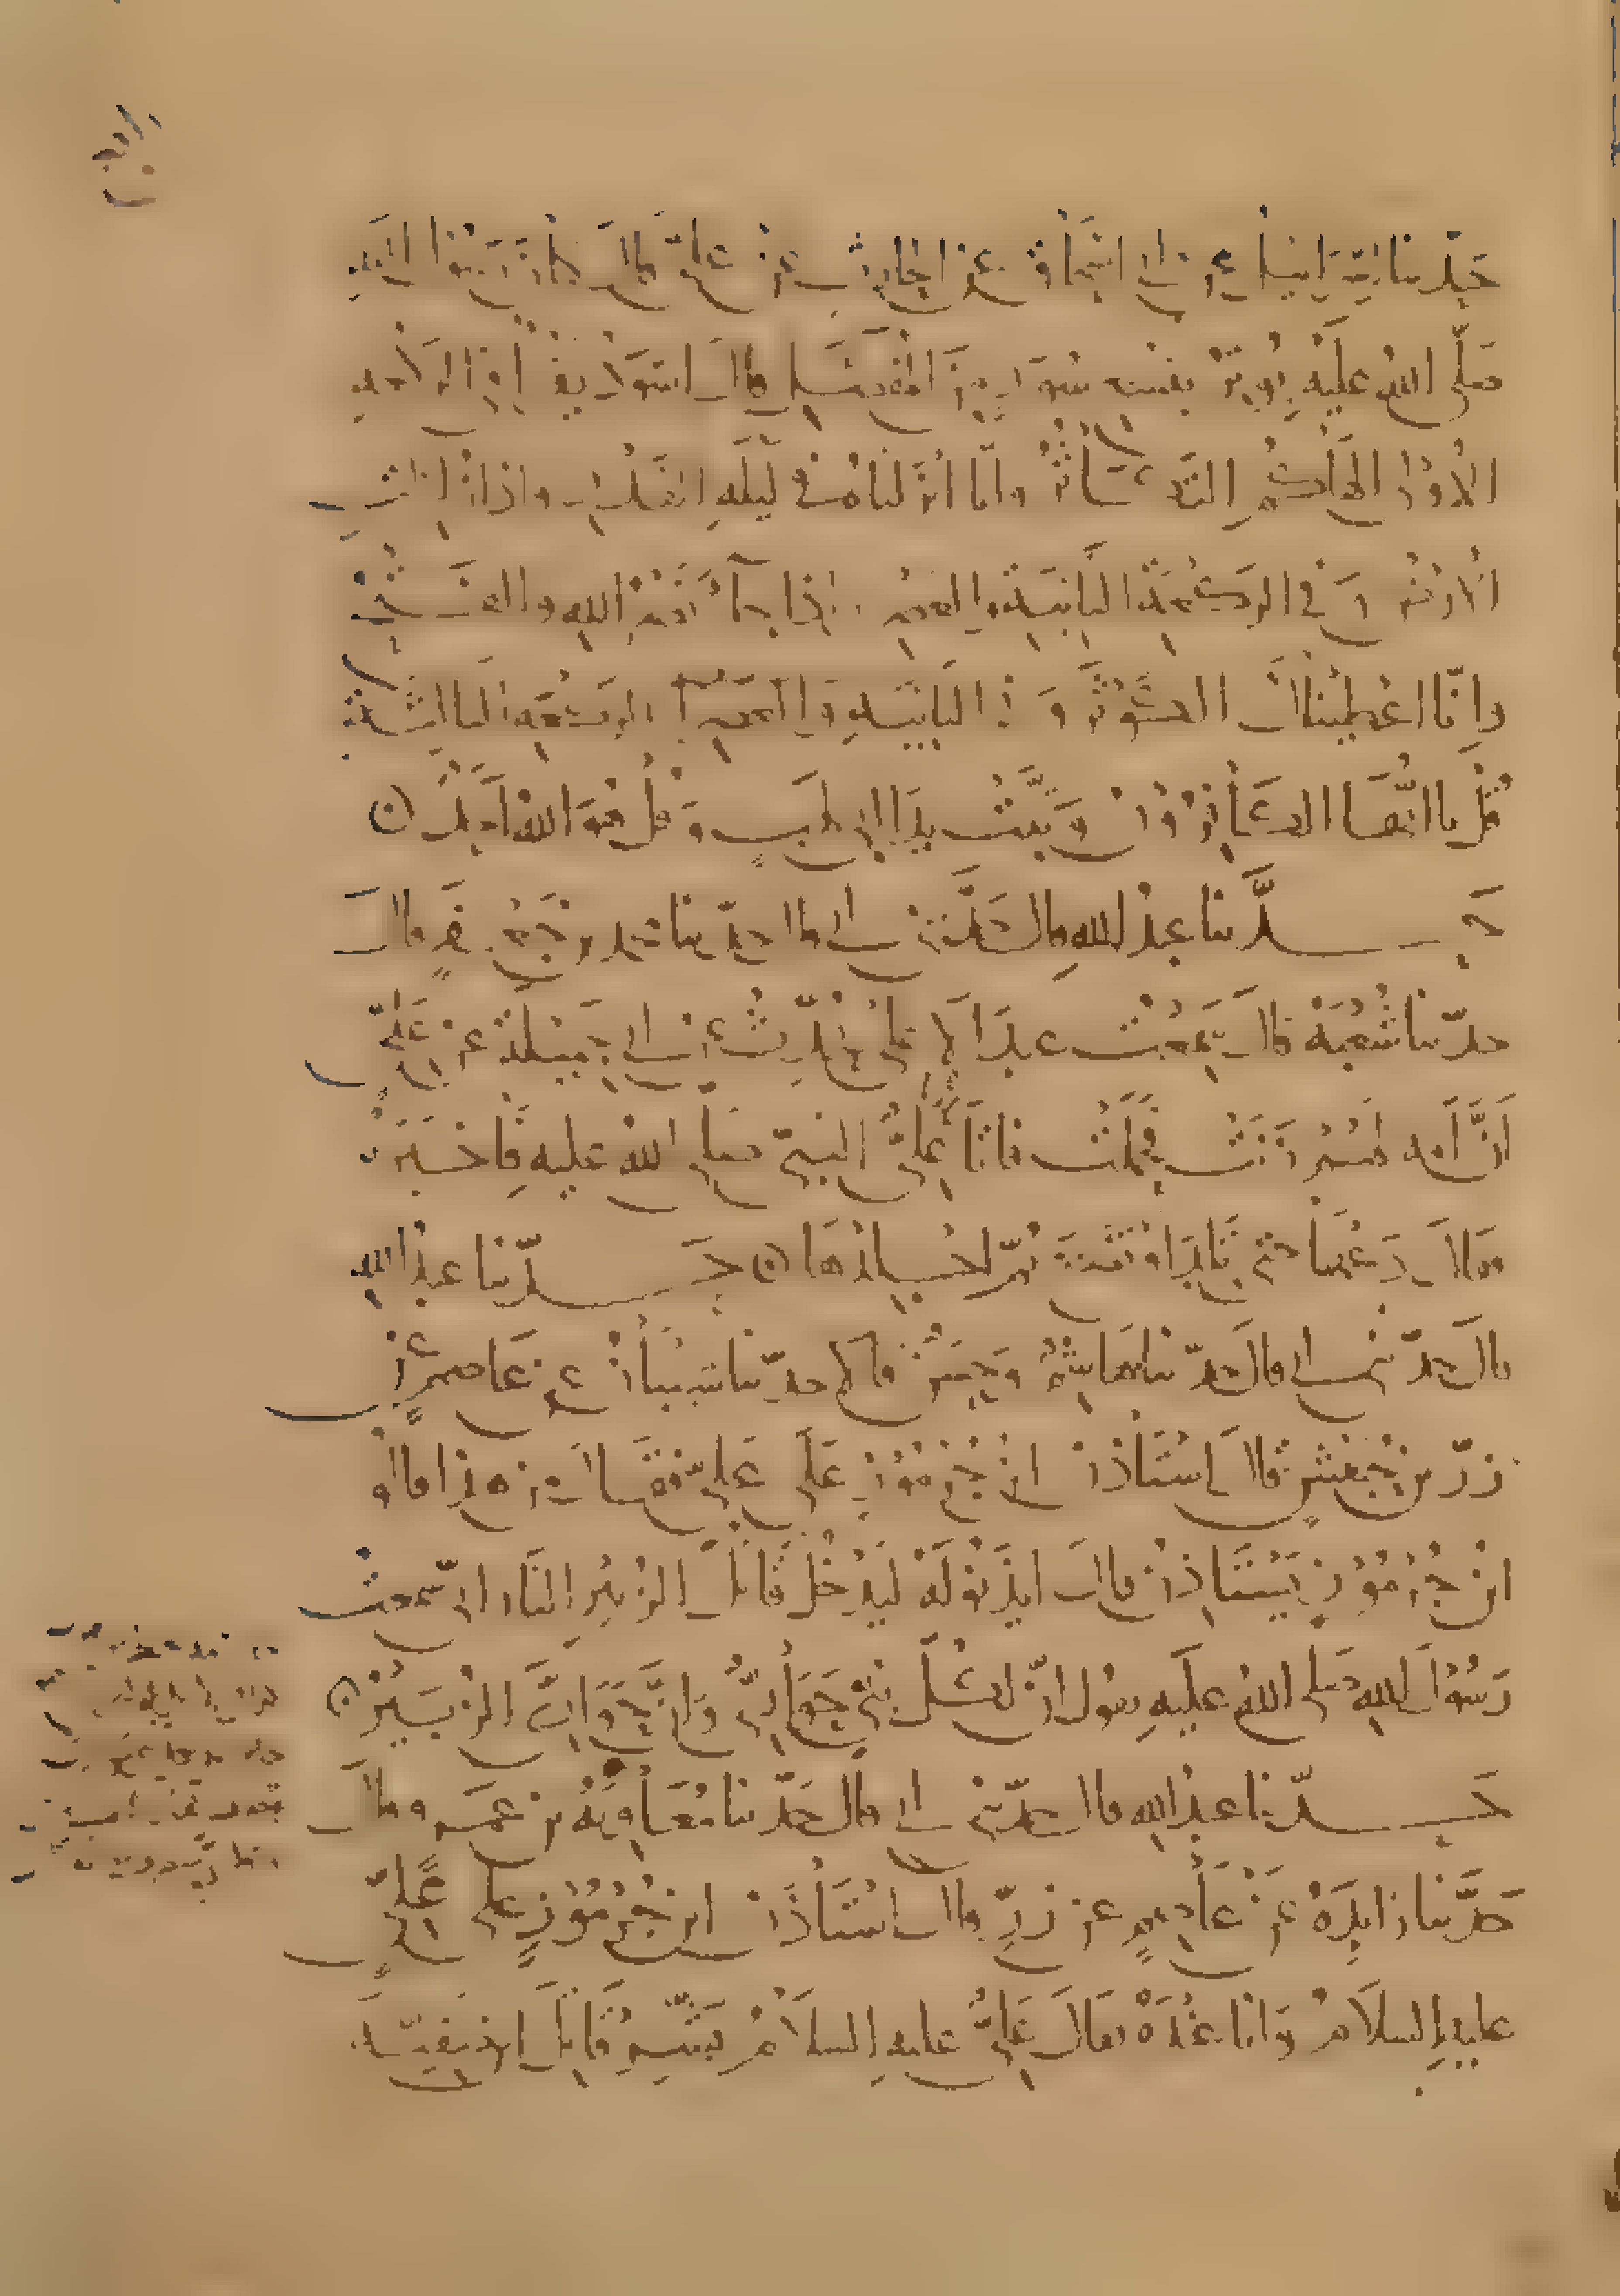 حدثنا إسرائيل عن أبي إسحاق عن الحارث عن علي قال كان رسول الله
صلى الله عليه يوتر بتسع سور من المفصل قال أسود يقرأ في الركعة
الأولى ألهاكم التكاثر وإنا أنزلناه في ليلة القدر وإذا زلزلت
الأرض وفي الركعة الثانية والعصر إذا جاء نصر الله والفتح
وإنا أعطيناك الكوثر وفي الركعة الثالثة
قل يا أيها الكافرون وتبت يدا أبي لهب وقل هو الله أحد ن
حدثنا عبد الله قال حدثني أبي قال حدثنا محمد بن جعفر قال
حدثنا شعبة قال سمعت عبد الأعلى يحدث عن أبي جميلة عن علي
أن أمة لهم زنت فحملت فأتا علي النبي صلى الله عليه فأخبره
فقال دعها حتى تلد أو تضع ثم اجلدها ن حدثنا عبد الله
قال حدثني أبي قال حدثنا هاشم وحسن قالا حدثنا شيبان عن عاصم عن
زر بن حبيش قال استأذن ابن جرموز على علي فقال من هذا قالوا
ابن جرموز يستأذن قال ائذنوا له ليدخل قاتل الزبير النار إني سمعت
رسول الله صلى الله عليه يقول إن لكل نبي حواري وإن حواري الزبير ن
حدثنا عبد الله قال حدثني أبي قال حدثنا معاوية بن عمرو قال
حدثنا زائدة عن عاصم عن زر قال استأذن ابن جرموز على علي
عليه السلام وأنا عنده فقال علي عليه السلام بشر قاتل ابن صفية